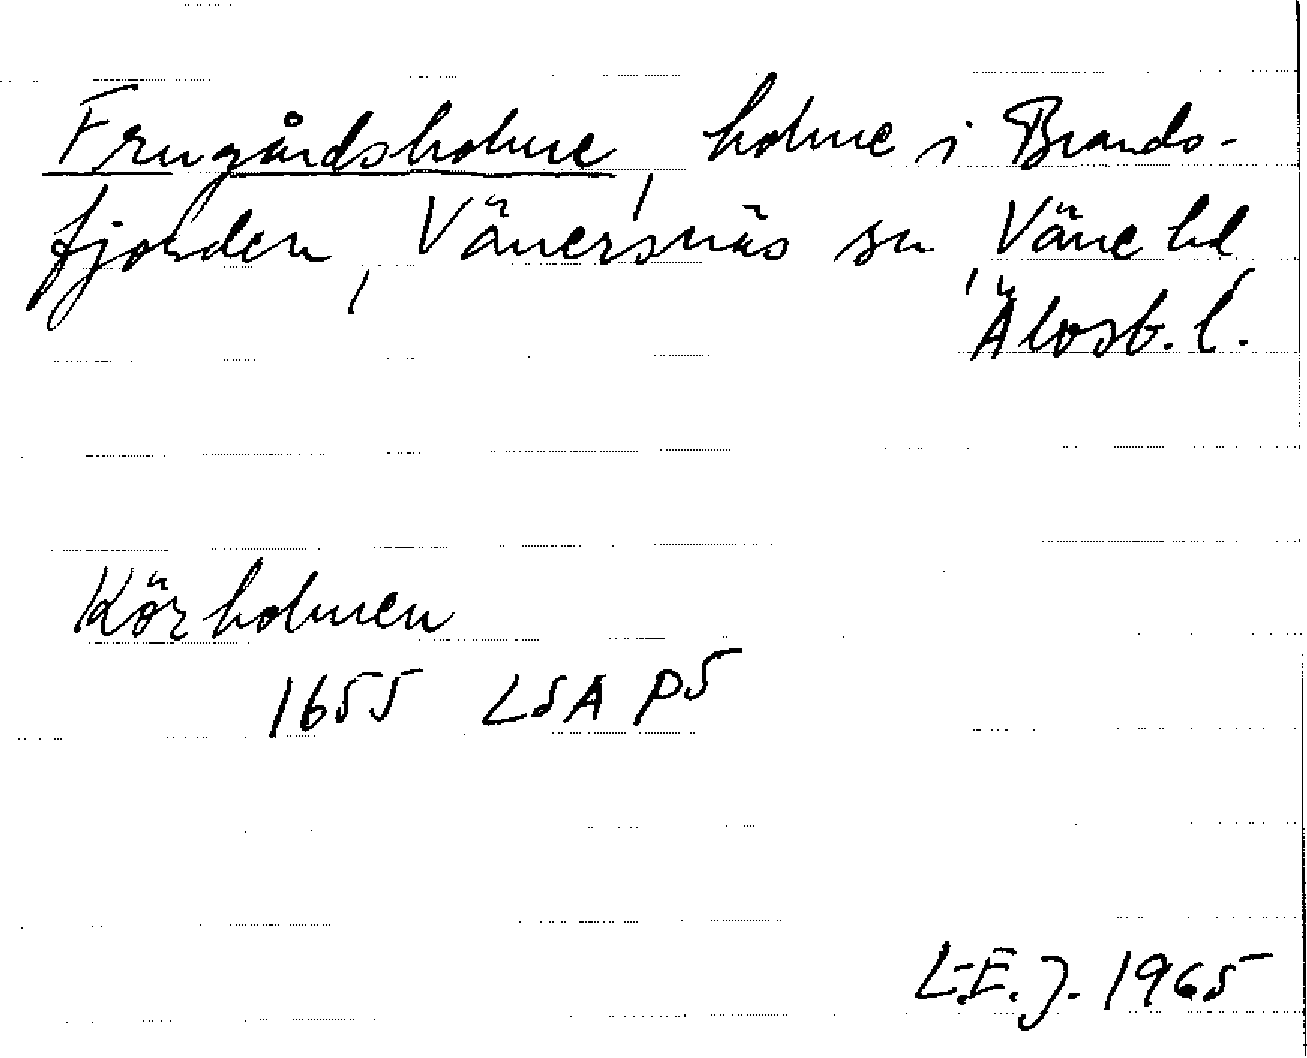 Frugårdsholme, holme i Brands-
fjorden, Vänersnäs sn, Väne hd
Älvsb. l.
Körholmen
1655 LSA P5
L-E. J. 1965